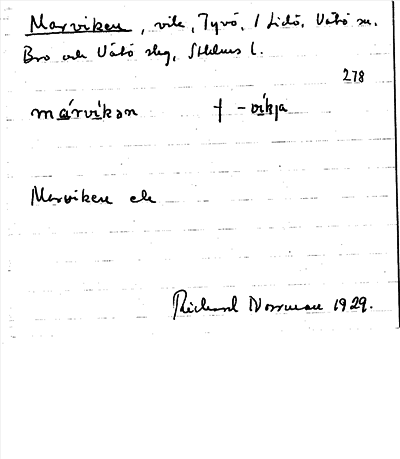 Marviken, vik, Tyvö, / Lidö, Vätö sn.
Bro och Vätö skg, Sthlms l.
278
márvíkən † -víkja
Marviken ek
Richard Norrman 1929.